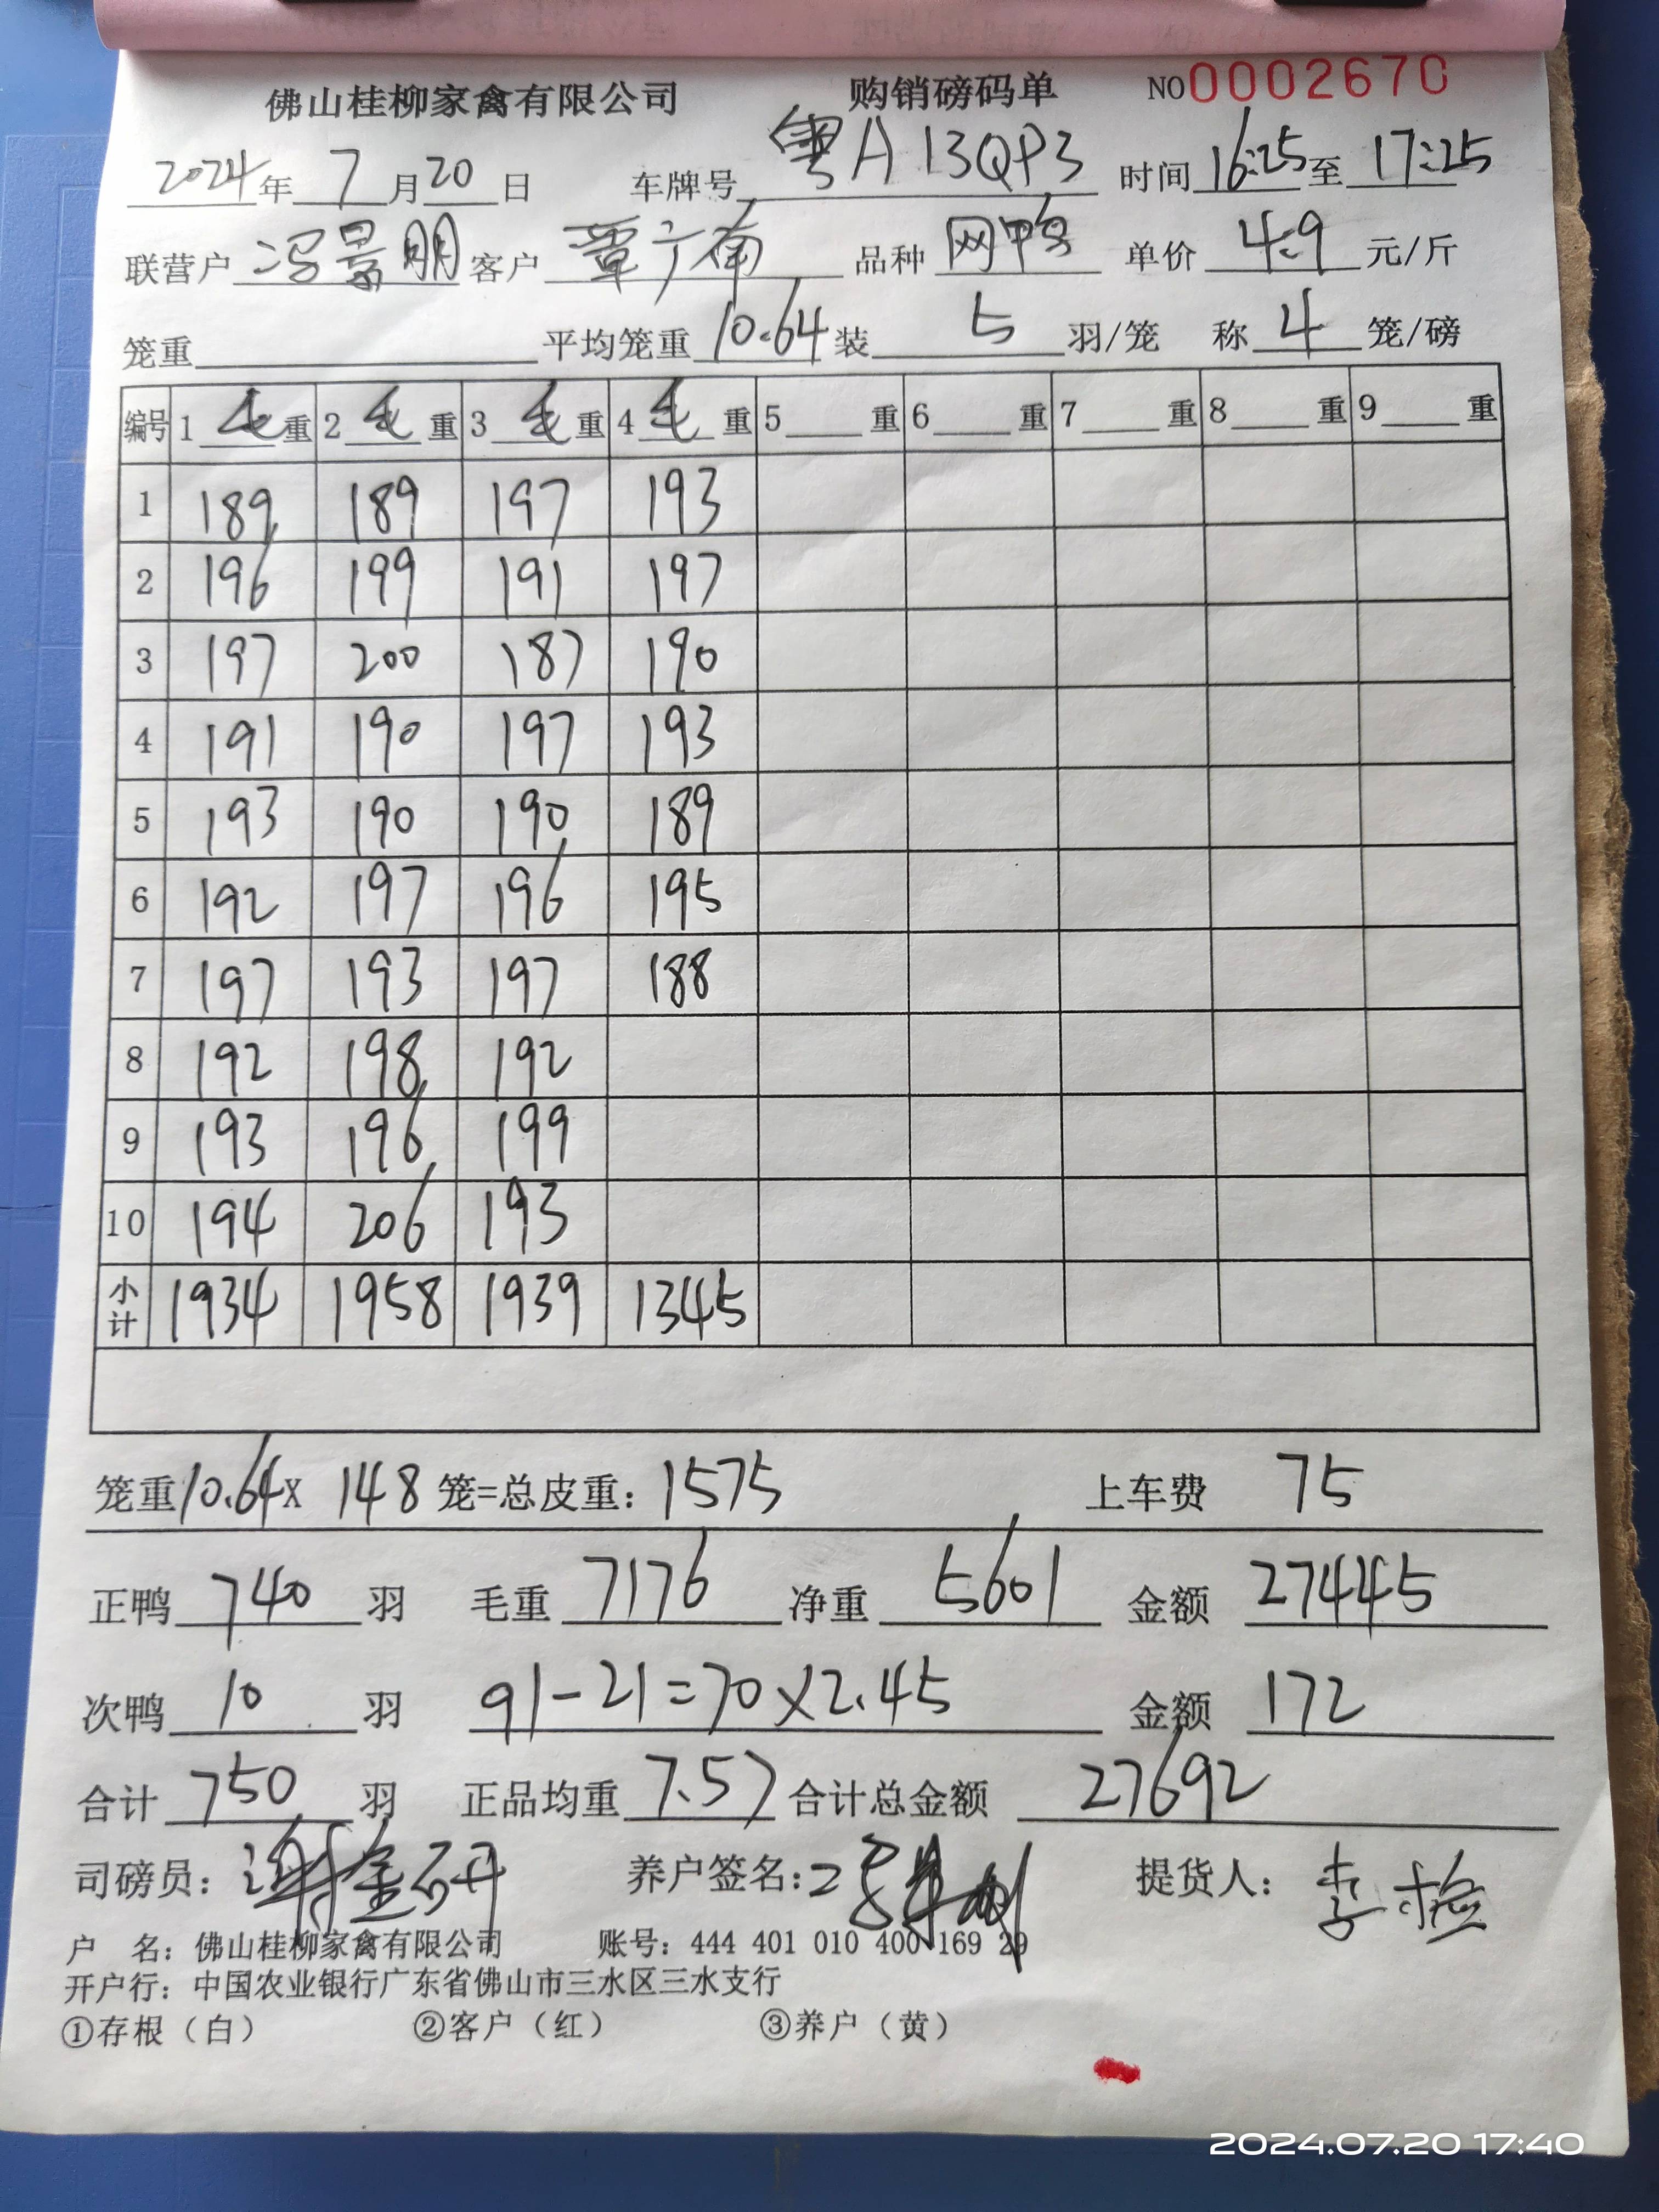 佛山桂柳家禽有限公司 购销磅码单 NO 0002670
2024年 7月20日 车牌号 粤A 13QP3 时间 16:25 至 17:25
联营户 冯景朋 客户 覃广南 品种 网鸭 单价 4.9 元/斤
笼重 平均笼重 10.64 装 5 羽/笼 称 4 笼/磅
编号 1 毛 重 2 毛 重 3 毛 重 4 毛 重 5 重 6 重 7 重 8 重 9 重
1 189 189 197 193
2 196 199 191 197
3 197 200 187 190
4 191 190 197 193
5 193 190 190 189
6 192 197 196 195
7 197 193 197 188
8 192 198 192
9 193 196 199
10 194 206 193
小计 1934 1958 1939 1345
笼重10.64X 148 笼=总皮重: 1575 上车费 75
正鸭 740 羽 毛重 7176 净重 5601 金额 27445
次鸭 10 羽 91-21=70×2.45 金额 172
合计 750 羽 正品均重 7.57 合计总金额 27692
司磅员: 养户签名: 提货人: 李
户 名: 佛山桂柳家禽有限公司 账号: 444 401 010 400 169 29
开户行: 中国农业银行广东省佛山市三水区三水支行
①存根(白) ②客户(红) ③养户(黄)
2024.07.20 17:40